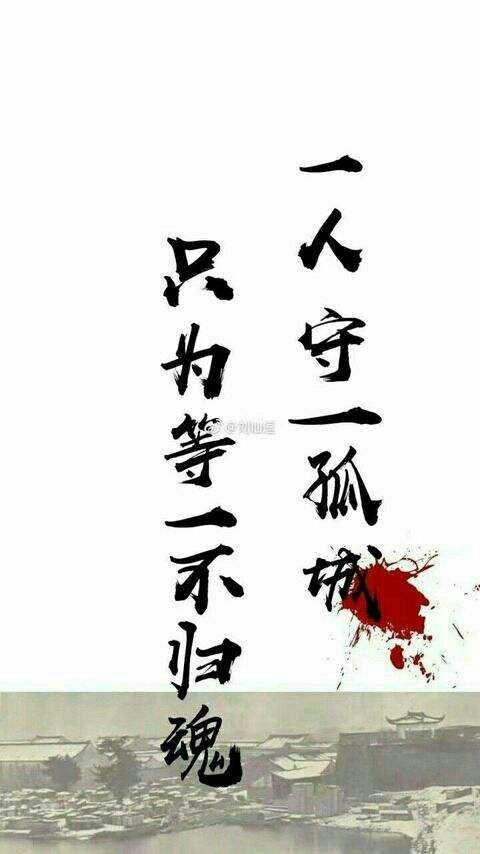 一人守一孤城
只为等一不归魂
@刘灿烂